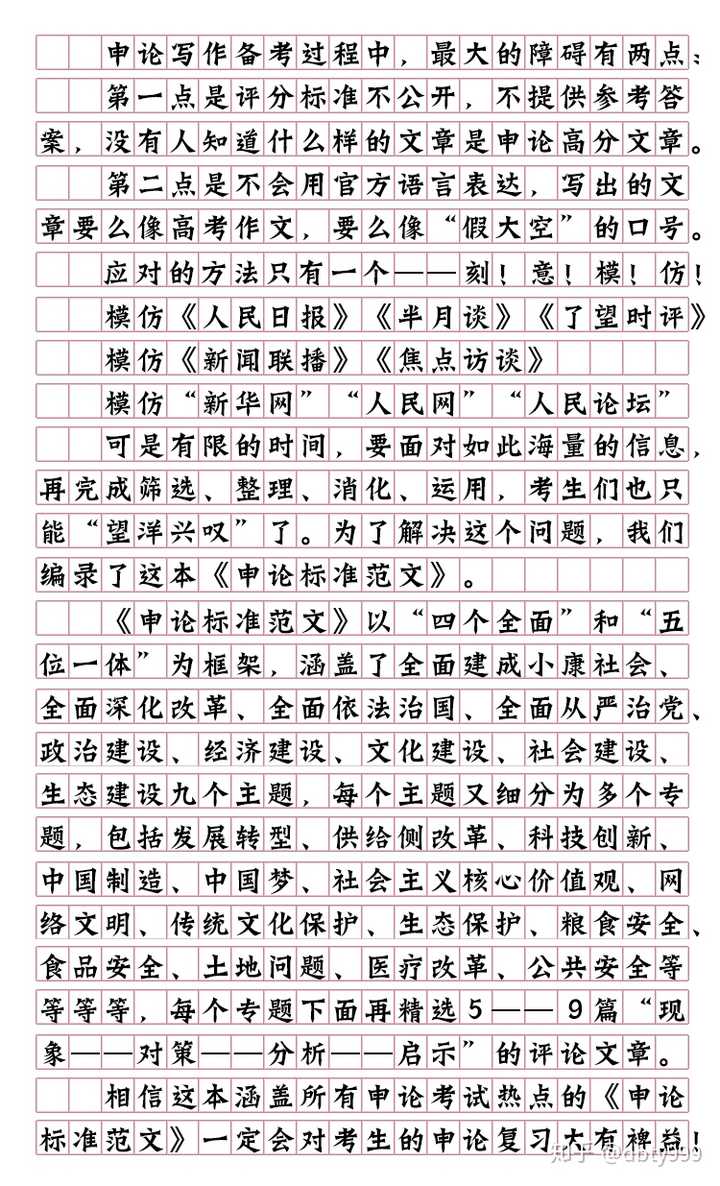 申论写作备考过程中，最大的障碍有两点：
第一点是评分标准不公开，不提供参考答
案，没有人知道什么样的文章是申论高分文章。
第二点是不会用官方语言表达，写出的文
章要么像高考作文，要么像“假大空”的口号。
应对的方法只有一个——刻！意！模！仿！
模仿《人民日报》《半月谈》《了望时评》
模仿《新闻联播》《焦点访谈》
模仿“新华网”“人民网”“人民论坛”
可是有限的时间，要面对如此海量的信息，
再完成筛选、整理、消化、运用，考生们也只
能“望洋兴叹”了。为了解决这个问题，我们
编录了这本《申论标准范文》。
《申论标准范文》以“四个全面”和“五
位一体”为框架，涵盖了全面建成小康社会、
全面深化改革、全面依法治国、全面从严治党、
政治建设、经济建设、文化建设、社会建设、
生态建设九个主题，每个主题又细分为多个专
题，包括发展转型、供给侧改革、科技创新、
中国制造、中国梦、社会主义核心价值观、网
络文明、传统文化保护、生态保护、粮食安全、
食品安全、土地问题、医疗改革、公共安全等
等等等，每个专题下面再精选5——9篇“现
象——对策——分析——启示”的评论文章。
相信这本涵盖所有申论考试热点的《申论
标准范文》一定会对考生的申论复习大有裨益！
知乎 @dbty999